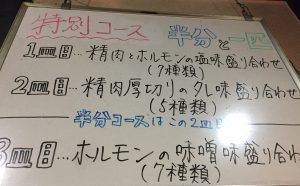 特別コース 半分と一皿
1皿目…精肉とホルモンの塩味盛り合わせ
(7種類)
2皿目…精肉厚切りのタレ味盛り合わせ
(5種類)
半分コースはこの2皿
3皿目…ホルモンの味噌味盛り合わせ
(7種類)